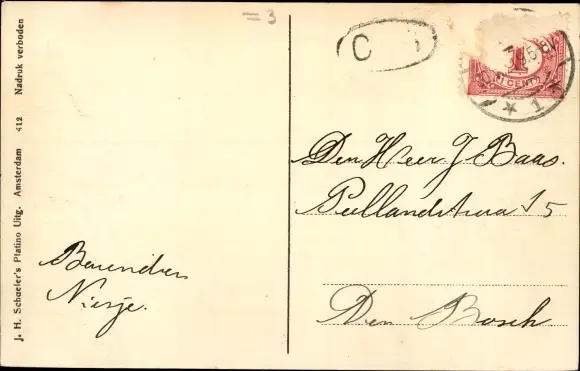 = 3
J. H. Schaefer's Platino Uitg. Amsterdam 412 Nadruk verboden
C
1
1 CENT
★ 1
Den Heer J Baas.
15
Den Bosch
Barendien
Niesje.